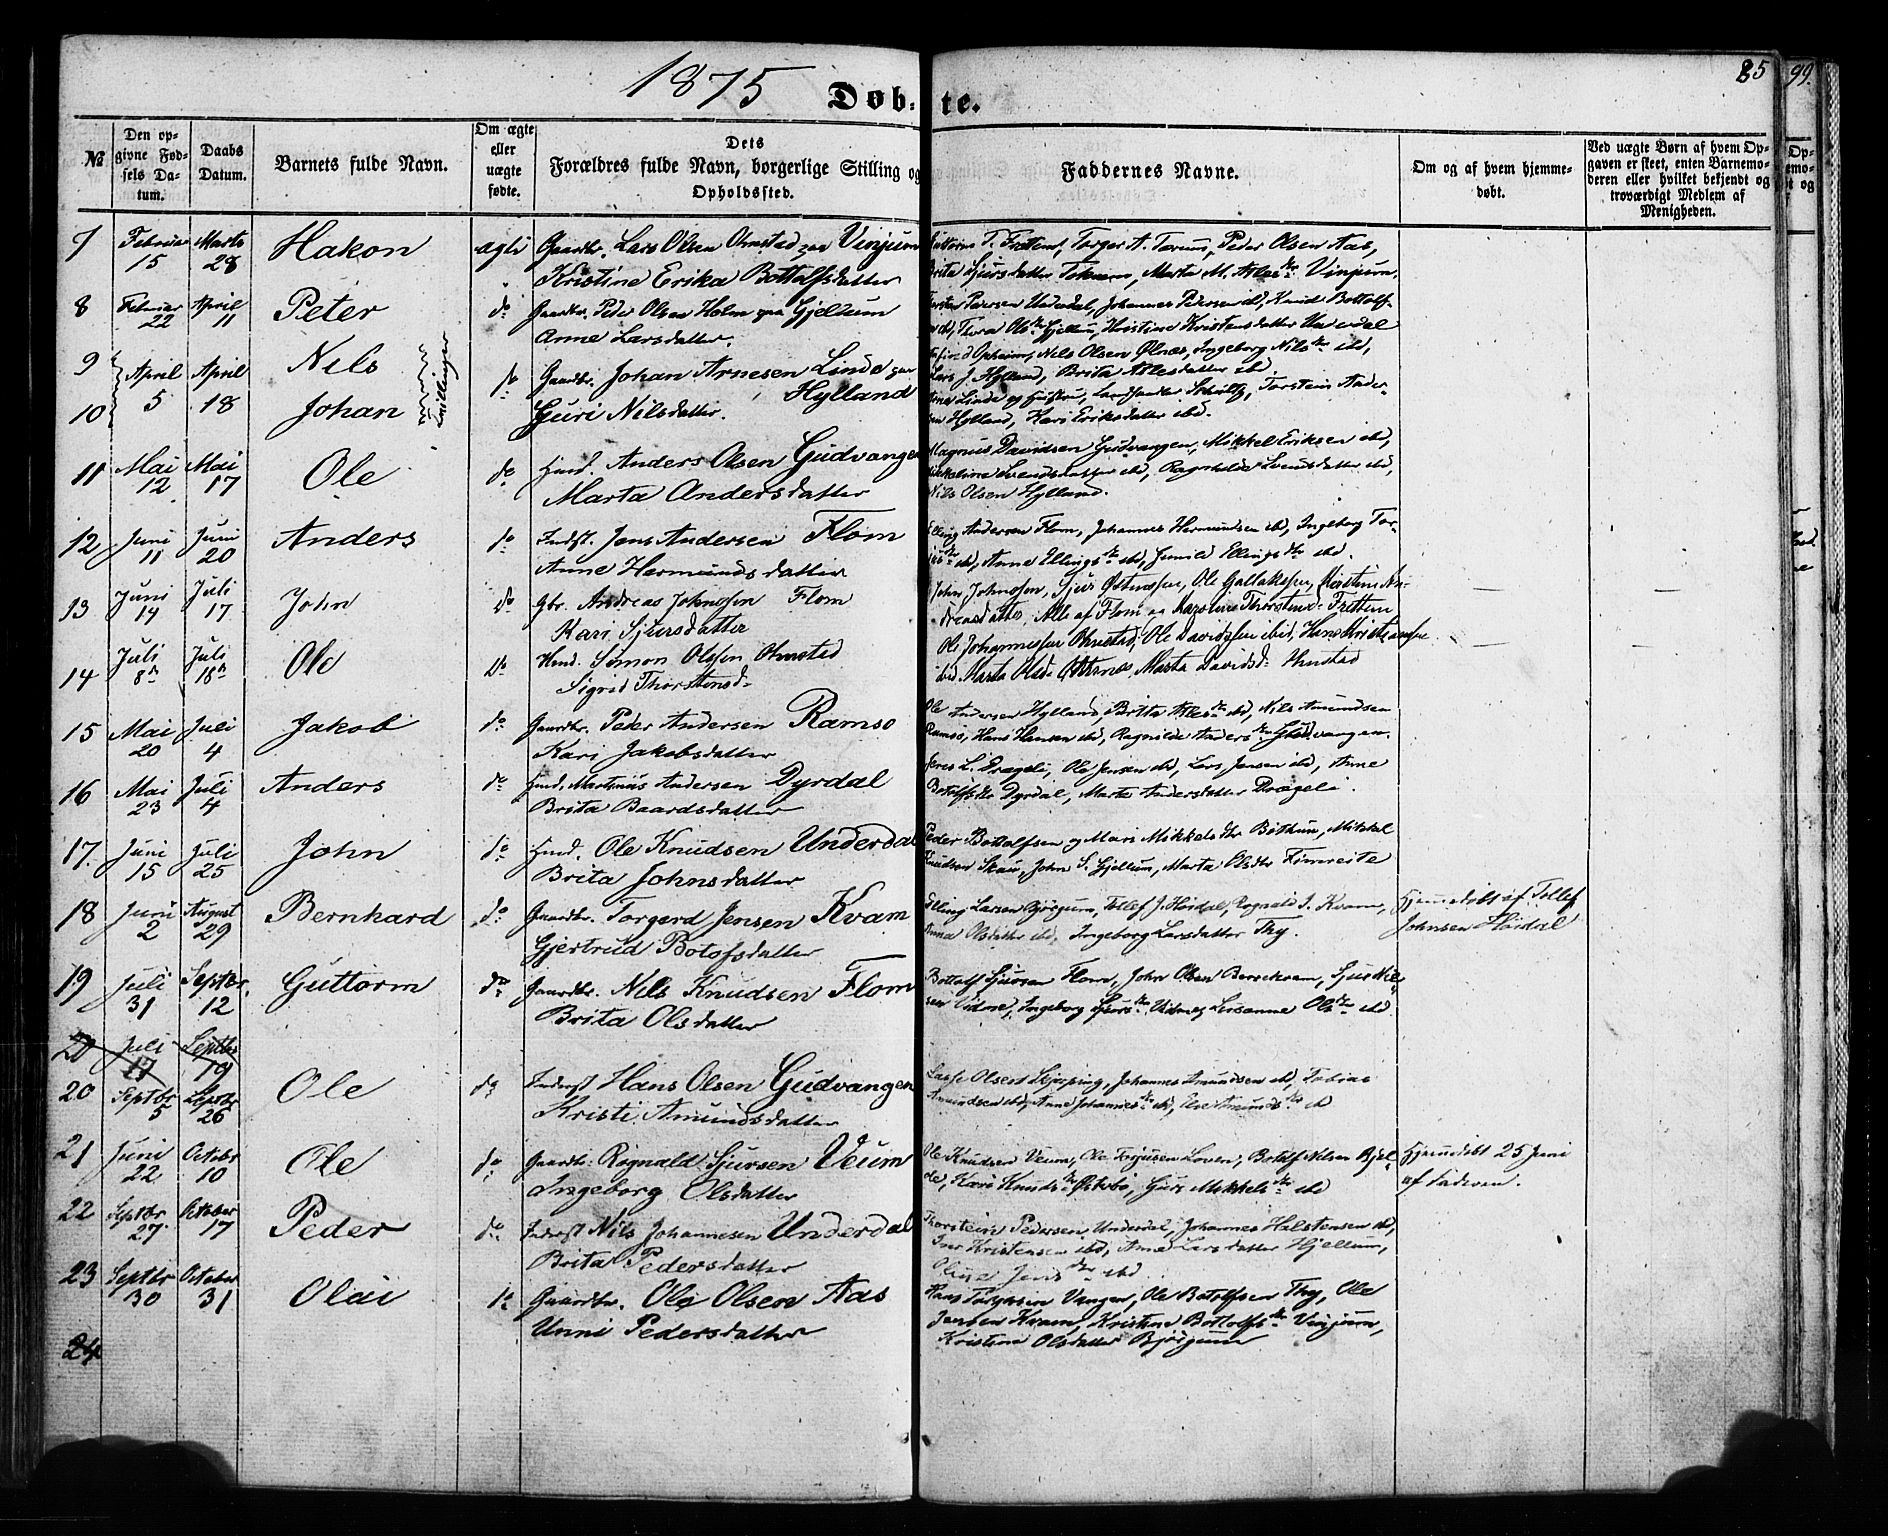 1875 Døb- te. 85 99.
№ Den opgivne Fødsels Datum. Daabs Datum. Barnets fulde Navn. Om ægte eller uægte fødte. Dets Forældres fulde Navn, borgerlige Stilling og Opholdssted. Faddernes Navne. Om og af hvem hjemmedøbt. Ved uægte Børn af hvem Opgaven er skeet, enten Barnemoderen eller hvilket bekjendt og troværdigt Medlem af Menigheden.
7 Februar 15 Marts 28 Hakon ægte Gaardbr. Lars Olsen Ohnstad paa Vinjum
Kristine Erika Bottolfsdatter
Torger A. Terum, Peder Olsen Aas,
Brita Sjursdatter Marta M. Atles dtr Vinjum.
8 Februar 22 April 11 Peter do Gaardbr. Peder Olsen Holm paa Gjellum
Anne Larsdatter.
Torsten Pedersen Underdal, Johannes Pedersen ibd, Knud Bottolf-
Thora Ols dtr Gjellum, Kristine Kristensdatter Underdal
9 April 5 April 18 Nils Tvillinger do Gaardbr. Johan Arnesen Linde paa Hylland
Opheim, Nils Olsen Ølnæs, Ingeborg Nils dtr ibd,
Lars J. Hylland, Brita Atlesdatter ibd
10 Johan Guri Nilsdatter.
Linde og Hustru, Torstein Ander-
sen Hylland, Kari Eriksdatter ibd.
11 Mai 12 Mai 17 Ole do Husmd. Anders Olsen Gudvangen
Marta Andersdatter
Magnus Davidsen Gudvangen, Mikkel Eriksen ibd,
Svendsdatter ibd, Ragnhilda Svendsdatter ibd,
Nils Olsen Hylland.
12 Juni 11 Juni 20 Anders do Inderst. Jens Andersen Flom
Anne Hermundsdatter
Elling Andersen Flom, Johannes Hermundsen ibd, Ingeborg Tor-
ibd, Anne Ellings dtr ibd, Gunild Ellings dtr ibd.
13 Juni 14 Juli 17 John do Gbr. Andreas Johnssen Flom
Kari Sjursdatter
John Johnssen, Sjur Østensen, Ole Gullakssen, Kirstine An-
dreasdatter, Alle af Flom, og Karoline Thorstensd. Fretten
— —
14 Juli 8de Juli 18de Ole Do Husmd. Simon Olssen Ohnstad
Sigrid Thorstensd.
Ole Johannessen Ohnstad, Ole Davidssen ibid, Hans Kristiansen
ibid, Marta Olsd. Marta Davidsd. Ohnstad
— —
15 Mai 20 Juli 4 Jakob do Gaardbr. Peder Andersen Ramsø
Kari Jakobsdatter
Ole Andersen Hylland, Britta Atles dtr ibd, Nils Amundsen
Ramsø, Hans Hansen ibd, Ragnilde Anders dtr Gudvangen.
16 Mai 23 Juli 4 Anders do Husmd. Martinus Andersen Dyrdal
Brita Baardsdatter
Jens L. Drægeli, Ole Jensen ibd, Lars Jensen ibd, Anne
Botolfsdtr Dyrdal, Marta Andersdatter Drægeli.
17. Juni 15 Juli 25 John do Husmd. Ole Knudsen Underdal
Brita Johnsdatter
Peder Bottolfsen og Mari Mikkelsdtr Bøthun, Mikkel
Knudsen Skau, John S. Gjellum, Marta Olsdtr Fimreite
18 Juni 2 August 29 Bernhard do Gaardbr. Torgerd Jensen Kvam
Gjertrud Botofsdatter
Elling Larsen Bjørgum, Tollef J. Høidal, Rognald I. Kvam,
Anna Olsdatter ibd, Ingeborg Larsdatter Thy.
Hjemedøbt af Tollef
Johnsen Høidal
19 Juli 31 Septbr. 12 Guttorm do Gaardbr. Nils Knudsen Flom
Brita Olsdatter
Bottolf Sjursen Flom, John Olsen Berekvam, Sjur Nil-
sen Vidme, Ingeborg Sjurs dtr Vidme, Lersanne Ols dtr ibd
20 Juli 17 Septbr 19
20 Septbr 5 Septbr 26 Ole do Inderst Hans Olsen Gudvangen
Kristi Amundsdatter
Lasse Olsen Skjerping, Johannes Amundsen ibd, Tobias
Amundsen ibd, Anne Johannes dtr ibd, Else Amunds dtr ibd
21 Juni 22 October 10 Ole do Gaardbr. Rognald Sjursen Veum
Ingeborg Olsdatter
Ole Knudsen Veum, Ole Loven, Botolf Nilsen Bjel-
de, Kari Knuds dtr Østerbø, Guri Mikkels dtr ibd
Hjemedøbt 25 Juni
af Faderen.
22 Septbr 27. October 17 Peder do Inderst Nils Johannesen Underdal
Brita Pedersdatter
Thorstein Pedersen Underdal, Johannes Halstensen ibd,
Iver Kristensen ibd, Anne Larsdatter Hjellum,
Oline Jens dtr ibd
23 Septbr 30 October 31 Olai do Gaardbr. Ole Olsen Aas
Unni Pedersdatter
Hans Torgersen Vangen, Ole Botolfsen Thy, Ole
Jensen Kvam, Kristine Bottolfs dtr Vinjum,
Kristine Olsdatter Bjørgum
24